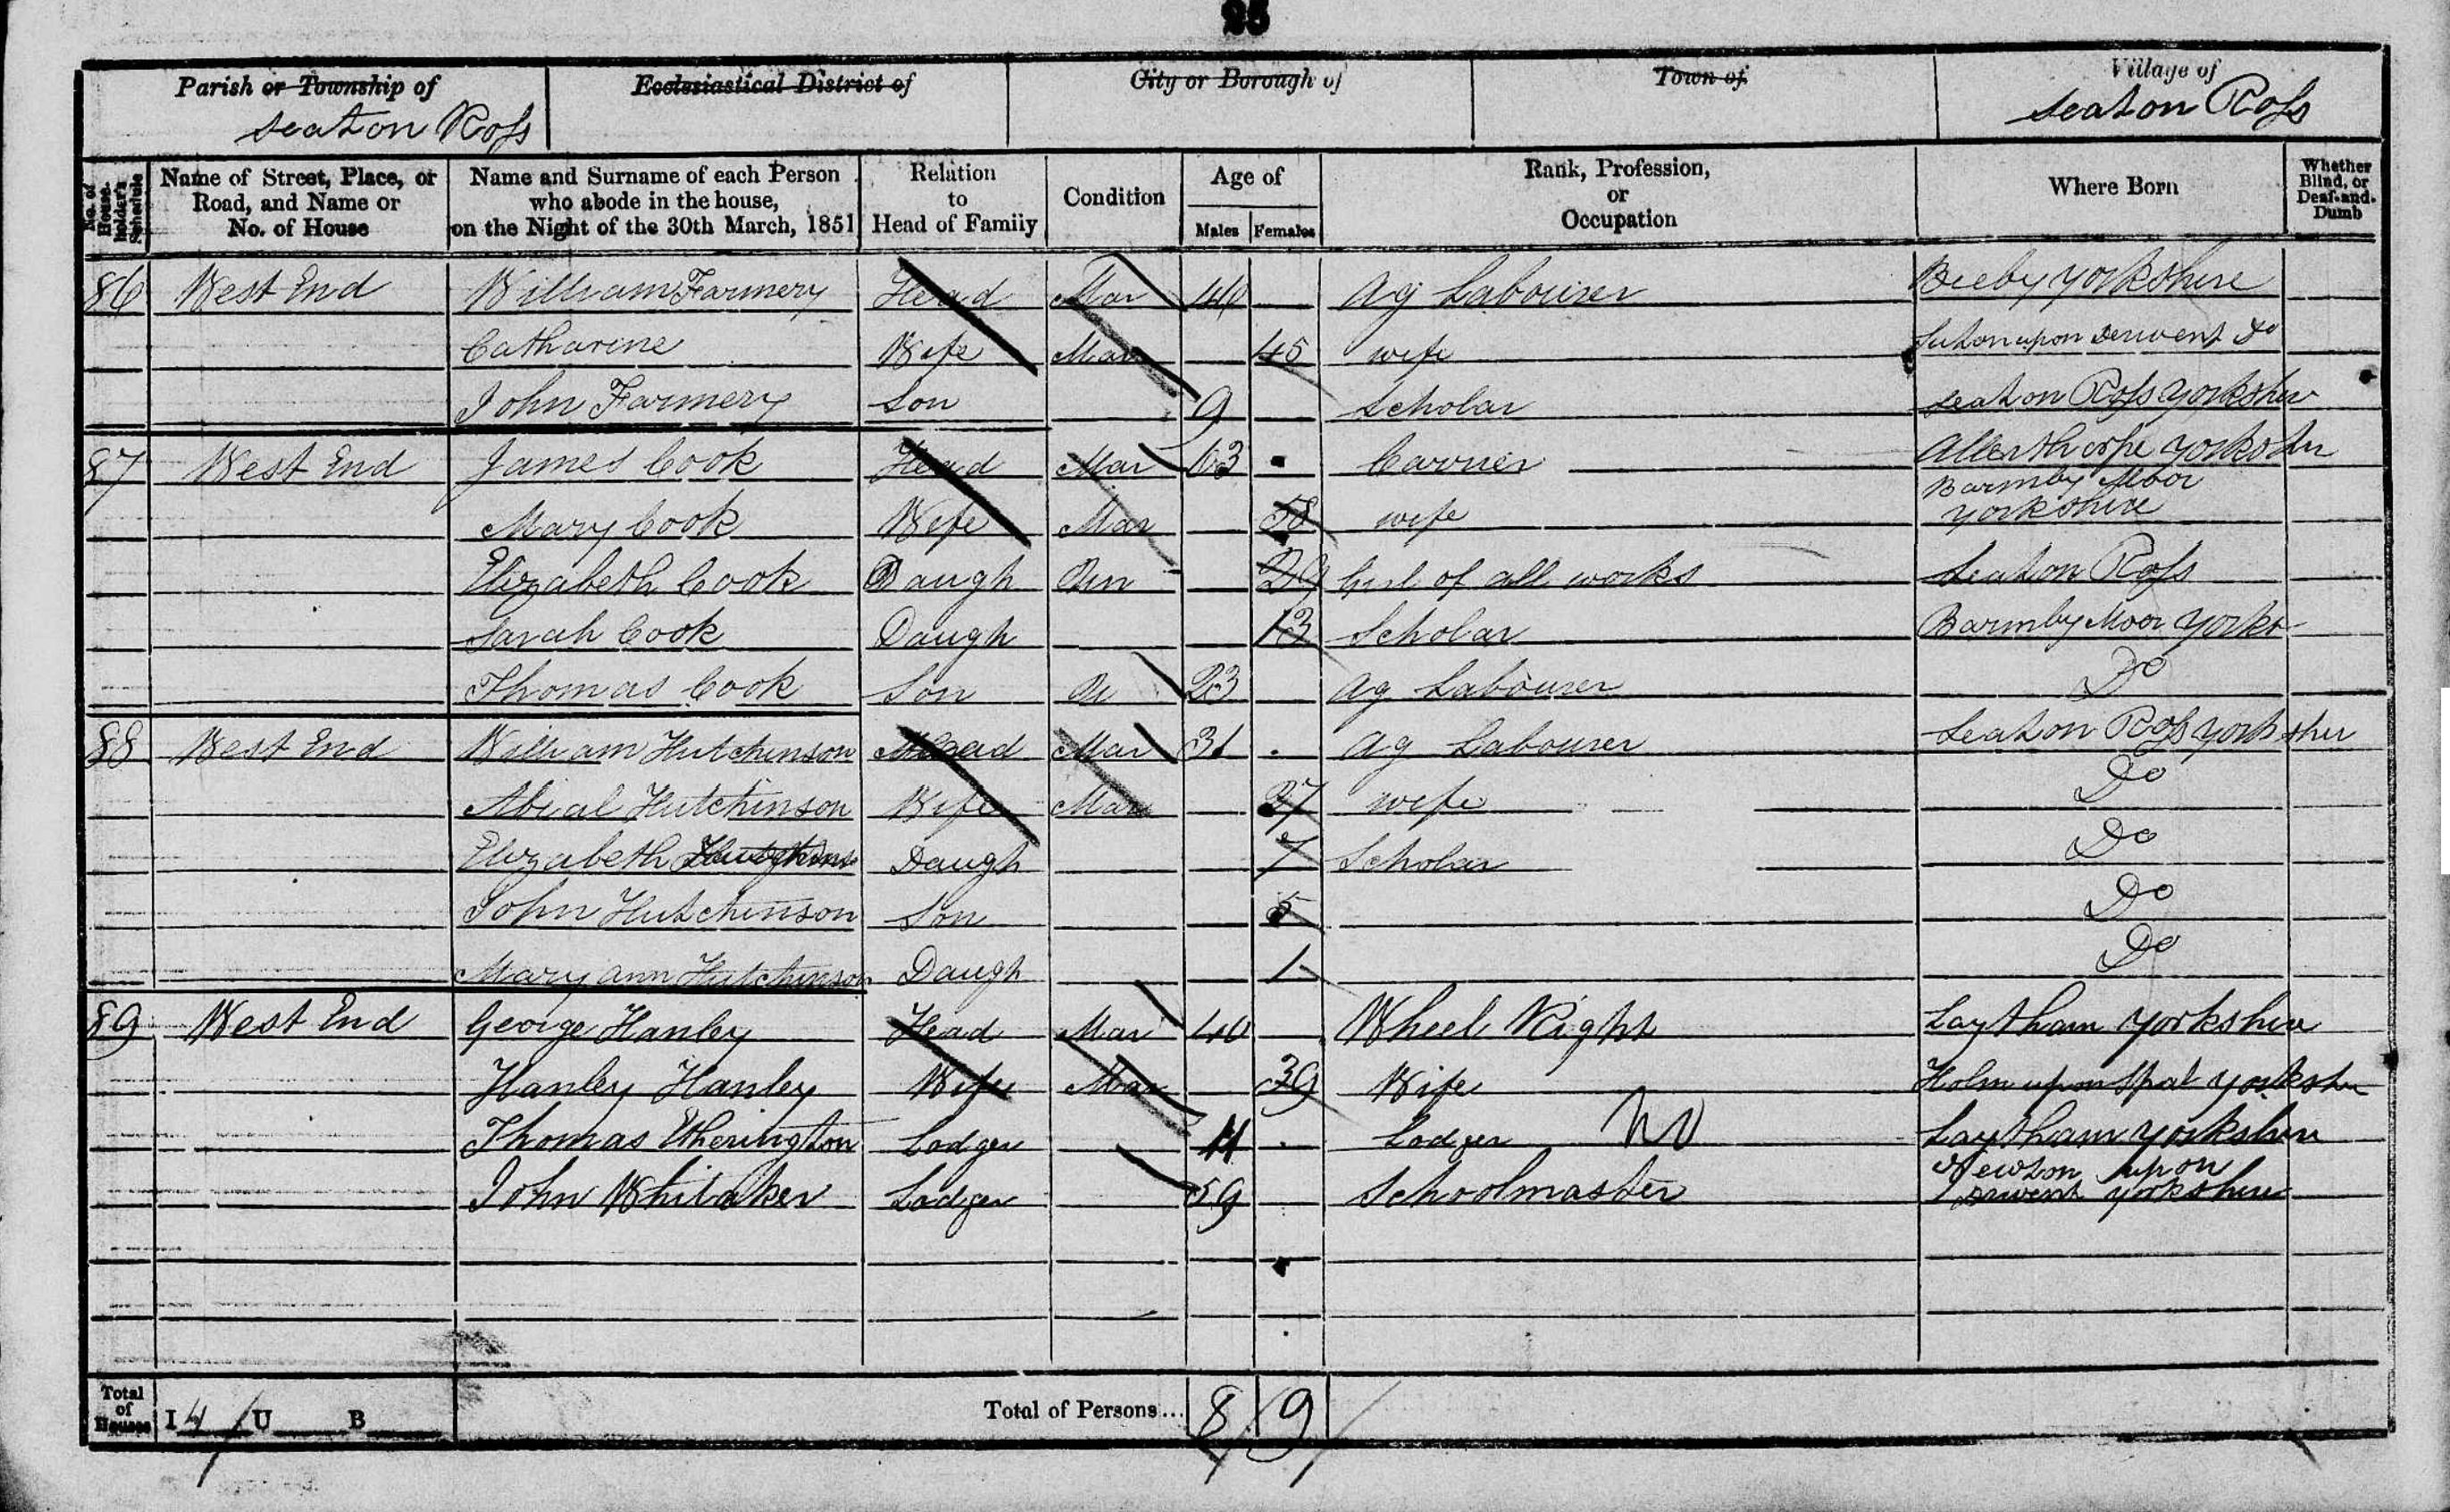 25
Parish or Township of
Seaton Ross
Ecclesiastical District of
City or Borough of
Town of
Village of
Seaton Ross
No. of House-holder's Schedule
Name of Street, Place, or Road, and Name or No. of House
Name and Surname of each Person who abode in the house, on the Night of the 30th March, 1851
Relation to Head of Family
Condition
Age of
Males
Females
Rank, Profession, or Occupation
Where Born
Whether Blind, or Deaf-and-Dumb
86 West End William Farmery Head Mar 40 Ag Labourer Yorkshire
Catharine Wife Mar 45 wife Suton upon Derwent Do
John Farmery Son 9 Scholar Seaton Ross Yorkshire
87 West End James Cook Head Mar 63 Carrier Allerthorpe Yorkshire
Mary Cook Wife Mar 58 wife Barmby Moor Yorkshire
Elizabeth Cook Daugh Un 29 Girl of all works Seaton Ross
Sarah Cook Daugh 13 Scholar Barmby Moor Yorks
Thomas Cook Son U 23 Ag Labourer Do
88 West End William Hutchinson Head Mar 31 Ag Labourer Seaton Ross Yorkshire
Abial Hutchinson Wife Mar 37 wife Do
Elizabeth Daugh 7 Scholar Do
John Hutchinson Son 5 Do
Mary ann Hutchinson Daugh 1 Do
89 West End George Hanley Head Mar 40 Wheel Right Laytham Yorkshire
Hanley Hanley Wife Mar 39 Wife Holm upon Spal Yorkshire
Thomas Etherington Lodger 11 Lodger Laytham Yorkshire
John Whitaker Lodger 59 Schoolmaster Newton upon Derwent Yorkshire
Total of Houses I 4 U B Total of Persons... 8 9